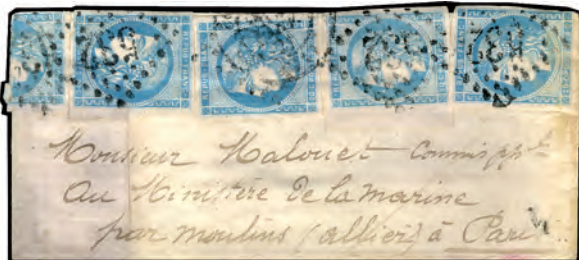 Monsieur Malouet Commis ppal
Au Ministère de la Marine
par moulins (allier) à Paris